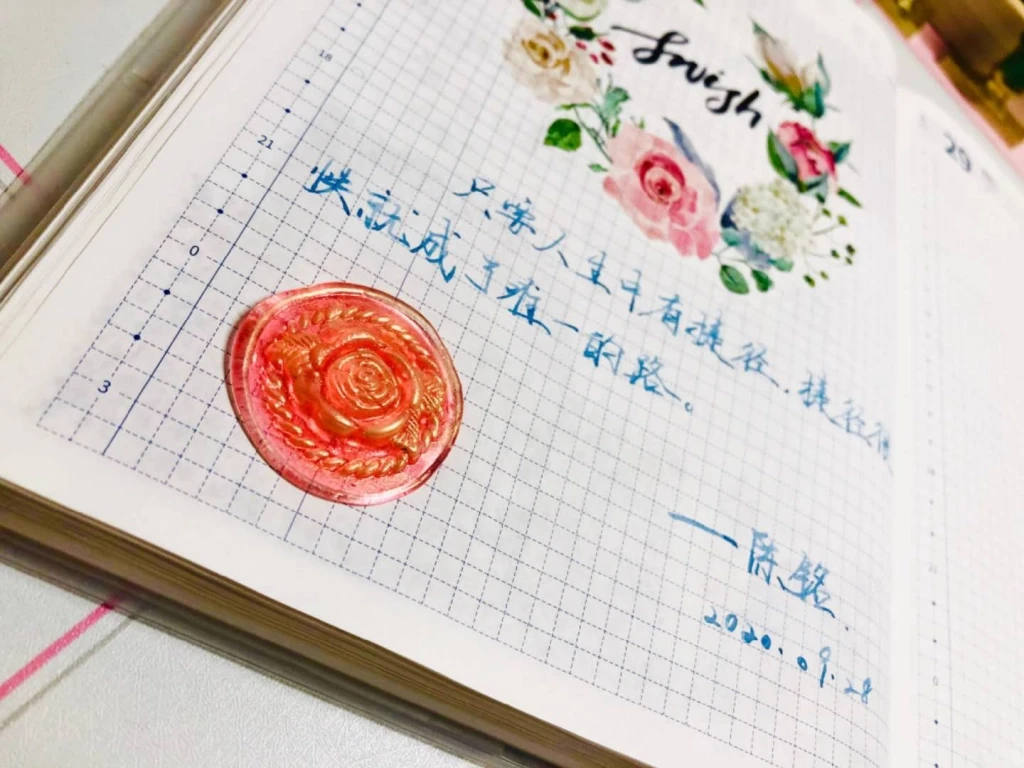 swish
18
21
0
3
只要人生中有捷径，捷径很
快就成了唯一的路。
——陈铭
2020.09.28
29